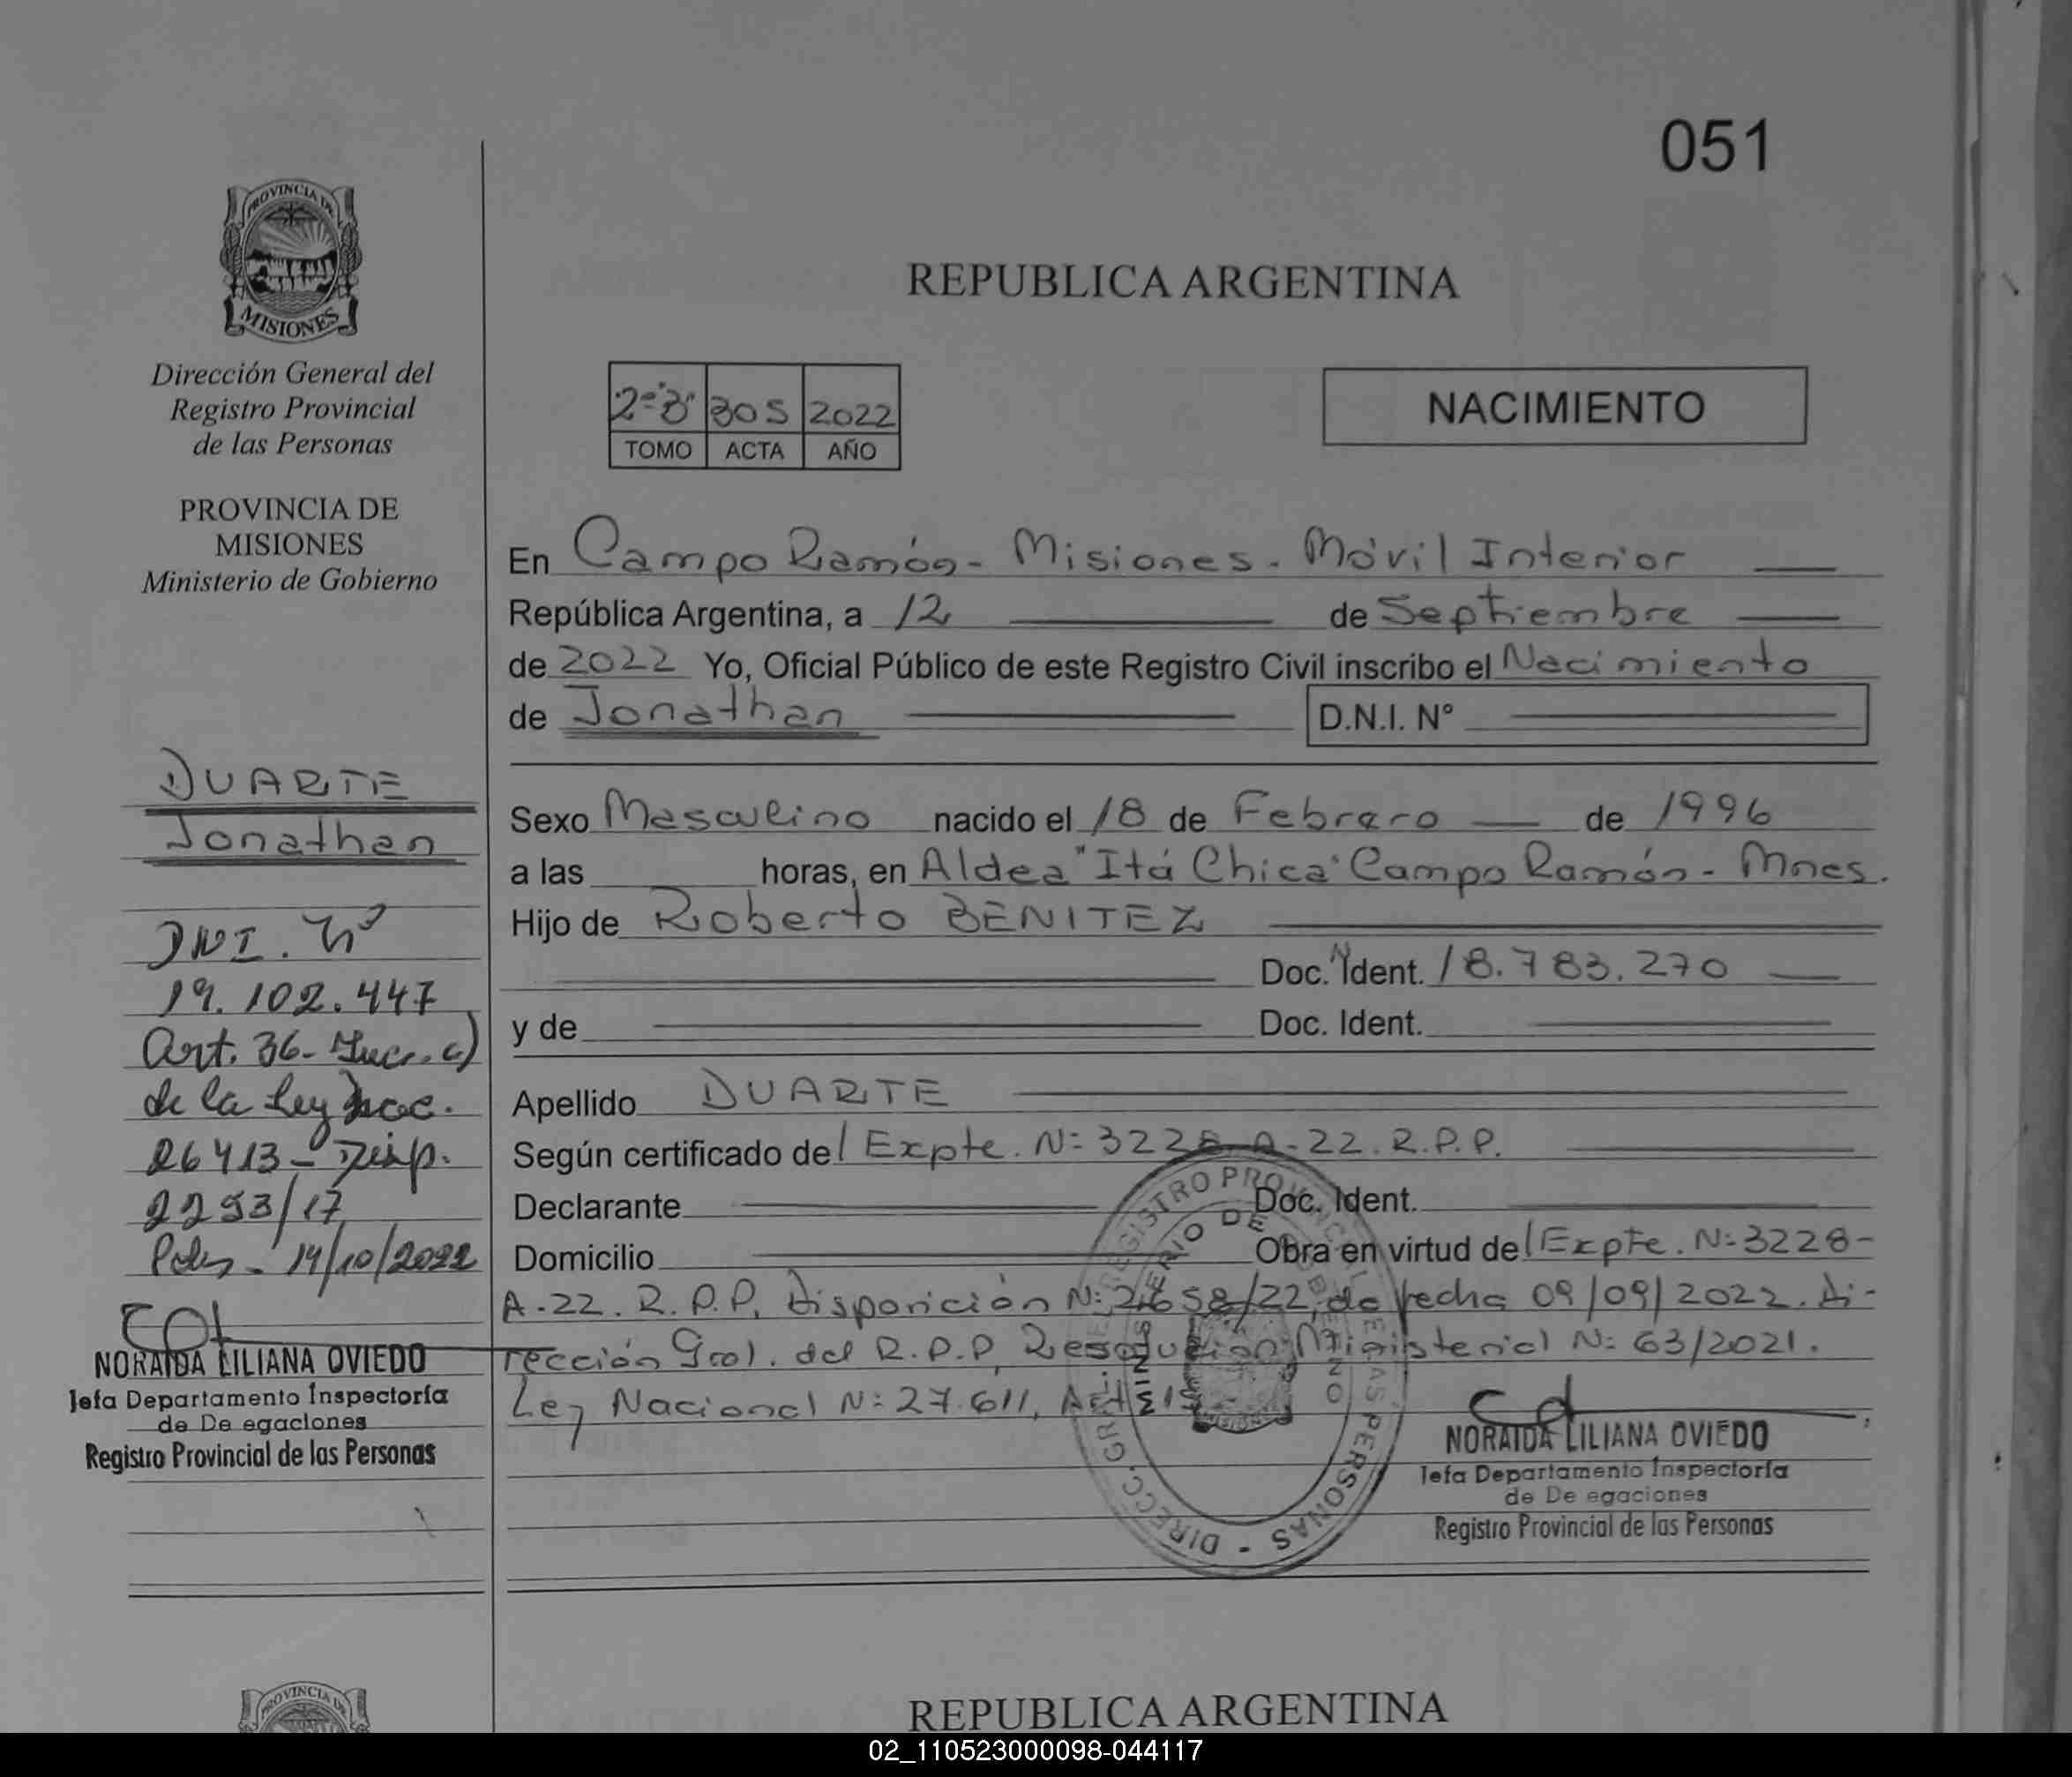 051
PROVINCIA DE
MISIONES
Dirección General del
Registro Provincial
de las Personas
PROVINCIA DE
MISIONES
Ministerio de Gobierno
DUARTE
Jonathan
DNI. Nº
19.102.447
Art. 36- Inc. c)
de la Ley Nac.
26413- Disp.
2293/17
Pdas- 14/10/2022
NORAIDA LILIANA OVIEDO
Jefa Departamento Inspectoría
de De egaciones
Registro Provincial de las Personas
REPUBLICA ARGENTINA
2º B 305 2022
TOMO ACTA AÑO
NACIMIENTO
En Campo Ramón - Misiones - Móvil Interior
República Argentina, a 12 de Septiembre
de 2022 Yo, Oficial Público de este Registro Civil inscribo el Nacimiento
de Jonathan D.N.I. N°
Sexo Masculino nacido el 18 de Febrero de 1996
a las horas, en Aldea "Itá Chica" Campo Ramón - Mnes.
Hijo de Roberto BENITEZ
Doc. Ident. 18.783.270
y de Doc. Ident.
Apellido DUARTE
Según certificado del Expte. Nº 3228-A-22. R.P.P.
Declarante Doc. Ident.
Domicilio Obra en virtud del Expte. Nº 3228-
A-22. R.P.P. Disposición Nº 2658/22, de fecha 09/09/2022. Di-
rección Gral. del R.P.P, Resolución Ministerial Nº 63/2021.
Ley Nacional Nº 27.611, Art.
DIRECC. GRAL. DE REGISTRO PROVINCIAL DE LAS PERSONAS -
MINISTERIO DE GOBIERNO
NORAIDA LILIANA OVIEDO
Jefa Departamento Inspectoría
de De egaciones
Registro Provincial de las Personas
PROVINCIA DE
REPUBLICA ARGENTINA
02_110523000098-044117